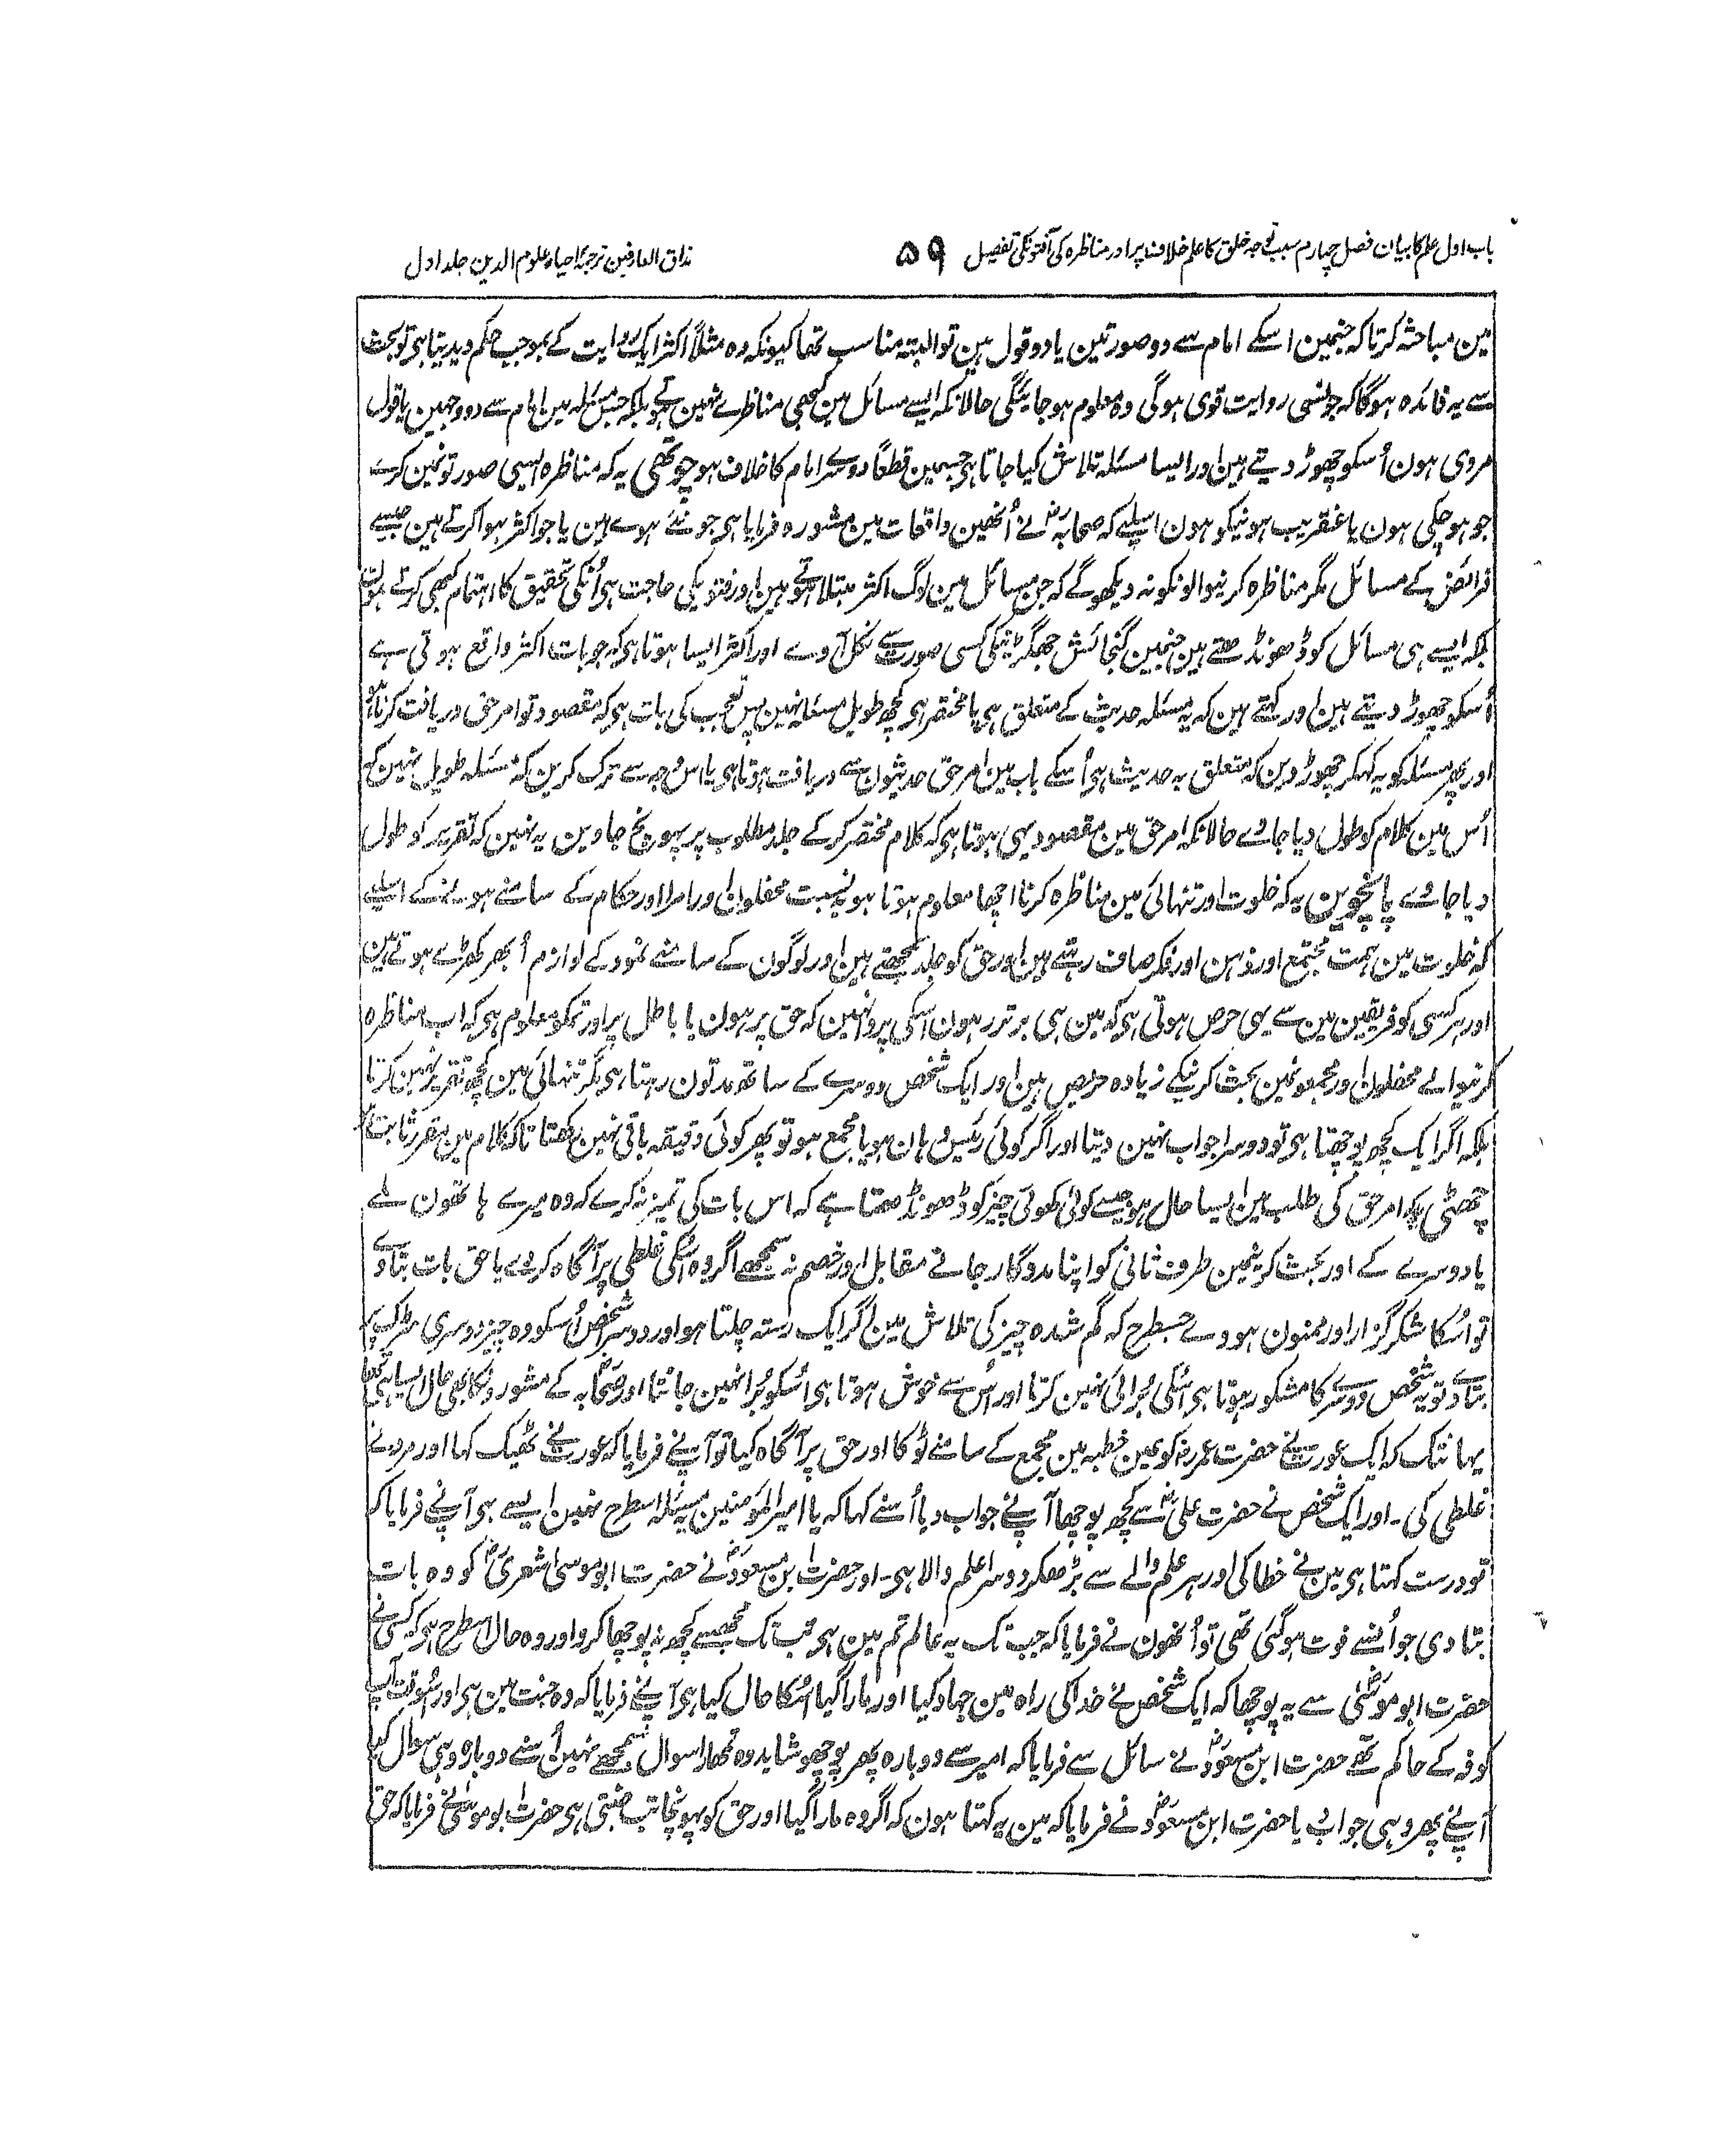 باب اول علم کا بیان فصل چہارم سبب توجہ خلق کا علم خلاف پر اور مناظرہ کی آفتونکی تفصیل ۵۹ مذاق العارفین ترجمۂ احیاء علوم الدین جلد اول
مین مباحثہ کرتا کہ جنمین اسکے امام سے دو صورتین یا دو قول ہین تو البتہ مناسب تھا کیونکہ وہ مثلاً اکثر ایک روایت کے بموجب حکم دیدیتا ہی تو بحث
سے یہ فائدہ ہوگا کہ جونسی روایت قوی ہوگی وہ معلوم ہو جائیگی حالانکہ ایسے مسائل مین کبھی مناظرے نہین ہوتے بلکہ جس مسئلہ مین امام سے دو وجہین یا قول
مروی ہون اُسکو چھوڑ دیتے ہین اور ایسا مسئلہ تلاش کیا جاتا ہی جسمین قطعاً دوسرے امام کا خلاف ہو چوتھی یہ کہ مناظرہ ایسی صورتونمین کرے
جو ہو چکی ہون یا عنقریب ہونیکو ہون اسلیے کہ صحابہؓ نے اُنھین واقعات مین مشورہ فرمایا ہی جو نئے ہوے ہین یا جو اکثر ہوا کرتے ہین جیسے
فرائض کے مسائل مگر مناظرہ کرنیوالونکو نہ دیکھو گے کہ جن مسائل مین لوگ اکثر مبتلا ہوتے ہین اور فتوے کی حاجت ہی اُنکی تحقیق کا اہتمام کبھی کرتے ہون
بلکہ ایسے ہی مسائل کو ڈھونڈھتے ہین جنمین گنجائش جھگڑنیکی کسی صورت سے نکل آوے اور اکثر ایسا ہوتا ہی کہ جو بات اکثر واقع ہوتی ہے
اُسکو چھوڑ دیتے ہین اور کہتے ہین کہ یہ مسئلہ حدیث کے متعلق ہی یا مختصر ہی کچھ طویل مسئلہ نہین پس تعجب کی بات ہی کہ مقصود تو امر حق دریافت کرنا ہو
اور پھر مسئلہ کو یہ کہکر چھوڑ دین کہ متعلق بہ حدیث ہی اُسکے باب مین امر حق حدیثون سے دریافت ہوتا ہی یا اس وجہ سے ترک کرین کہ مسئلہ طویل نہین کہ
اُس مین کلام کو طول دیا جائے حالانکہ امر حق مین مقصود یہی ہوتا ہی کہ کلام مختصر کرکے جلد مطلوب پر پہونچ جاوین یہ نہین کہ تقریر کو طول
دیا جائے پانچوین یہ کہ خلوت اور تنہائی مین مناظرہ کرنا اچھا معلوم ہوتا ہو بہ نسبت محفلون اور امرا اور حکام کے سامنے ہونے کے اسلیے
کہ خلوت مین ہمت مجتمع اور ذہن اور فکر صاف رہتے ہین اور حق کو جلد سمجھتے ہین اور لوگون کے سامنے نمود کے لوازم اُبھر کھڑے ہوتے ہین
اور ہر کسی کو فریقین مین سے یہی حرص ہوتی ہی کہ مین ہی برتر رہون اسکی پروا نہین کہ حق پر ہون یا باطل پر اور تمکو معلوم ہی کہ اب مناظرہ
کرنیوالے محفلون اور مجمعونمین بحث کرنیکے زیادہ حریص ہین اور ایک شخص دوسرے کے ساتھ مدتون رہتا ہی مگر تنہائی مین کچھ تقریر نہین کرتا
بلکہ اگر ایک کچھ پوچھتا ہی تو دوسرا جواب نہین دیتا اور اگر کوئی رئیس وہان ہو یا مجمع ہو تو پھر کوئی دقیقہ باقی نہین رکھتا تاکہ کلام مین مقرر ثابت ہو
چھٹی یہ کہ امر حق کی طلب مین ایسا حال ہو جیسے کوئی کھوئی چیز کو ڈھونڈھتا ہے کہ اس بات کی تمیز نہ کرے کہ وہ میرے ہاتھون ملے
یا دوسرے کے اور بحث کرنیمین طرف ثانی کو اپنا مددگار جانے مقابل اور خصم نہ سمجھے اگر وہ اُسکی غلطی پر آگاہ کردے یا حق بات بتادے
تو اُسکا شکر گزار اور ممنون ہووے جسطرح کہ گم شدہ چیز کی تلاش مین اگر ایک رستہ چلتا ہو اور دوسرا شخص اُسکو وہ چیز دوسری سڑک پر
بتادے تو یہ شخص دوسرے کا مشکور ہوتا ہی اُسکی بُرائی نہین کرتا اور اُس سے خوش ہوتا ہی اُسکو بُرا نہین جانتا اور صحابہؓ کے مشورونکا بھی حال ایسا ہی تھا
یہانتک کہ ایک عورت نے حضرت عمرؓ کو عین خطبہ مین مجمع کے سامنے ٹوکا اور حق پر آگاہ کیا تو آپنے فرمایا کہ عورت نے ٹھیک کہا اور مرد نے
غلطی کی۔ اور ایک شخص نے حضرت علیؓ سے کچھ پوچھا آپنے جواب دیا اُسنے کہا کہ یا امیر المؤمنین یہ مسئلہ اسطرح نہین ایسے ہی آپنے فرمایا کہ
تو درست کہتا ہی مین نے خطا کی اور ہر علم والے سے بڑھکر دوسرا علم والا ہی۔ اور حضرت ابن مسعودؓ نے حضرت ابو موسیٰ اشعریؓ کو وہ بات
بتا دی جو اُنسے فوت ہو گئی تھی تو اُنھون نے فرمایا کہ جب تک یہ عالم تم مین ہی تب تک مجھسے کچھ نہ پوچھا کرو اور وہ حال اسطرح ہی کہ کسی نے
حضرت ابو موسیٰؓ سے یہ پوچھا کہ ایک شخص نے خدا کی راہ مین جہاد کیا اور مارا گیا اُسکا حال کیا ہی آپنے فرمایا کہ وہ جنت مین ہی اور اُسوقت آپ
کوفہ کے حاکم تھے حضرت ابن مسعودؓ نے سائل سے فرمایا کہ امیر سے دوبارہ پھر پوچھو شاید وہ تمھارا سوال سمجھے نہین اُسنے دوبارہ وہی سوال کیا
آپنے پھر وہی جواب دیا حضرت ابن مسعودؓ نے فرمایا کہ مین یہ کہتا ہون کہ اگر وہ مارا گیا اور حق کو پہونچا تب جنتی ہی حضرت ابو موسیٰؓ نے فرمایا کہ حق